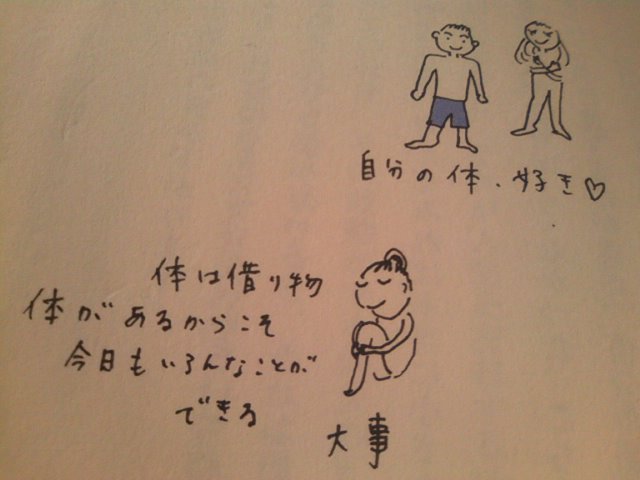 自分の体、好き♡
体は借り物
体があるからこそ
今日もいろんなことが
できる
大事